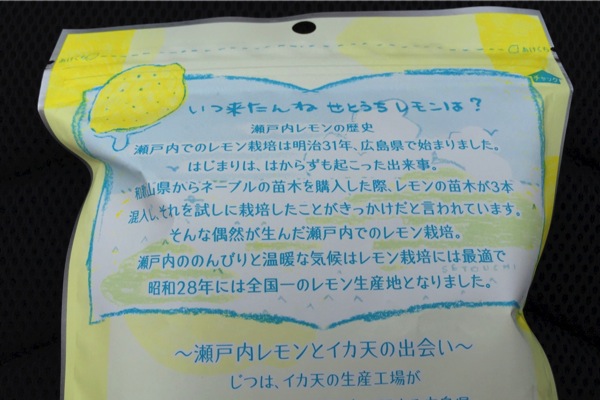 あけくち
あけくち
チャック
いつ来たんね せとうちレモンは?
瀬戸内レモンの歴史
瀬戸内でのレモン栽培は明治31年、広島県で始まりました。
はじまりは、はからずも起こった出来事。
和歌山県からネーブルの苗木を購入した際、レモンの苗木が3本
混入し、それを試しに栽培したことがきっかけだと言われています。
そんな偶然が生んだ瀬戸内でのレモン栽培。
瀬戸内ののんびりと温暖な気候はレモン栽培には最適で
昭和28年には全国一のレモン生産地となりました。
SETOUCHI
〜瀬戸内レモンとイカ天の出会い〜
じつは、イカ天の生産工場が